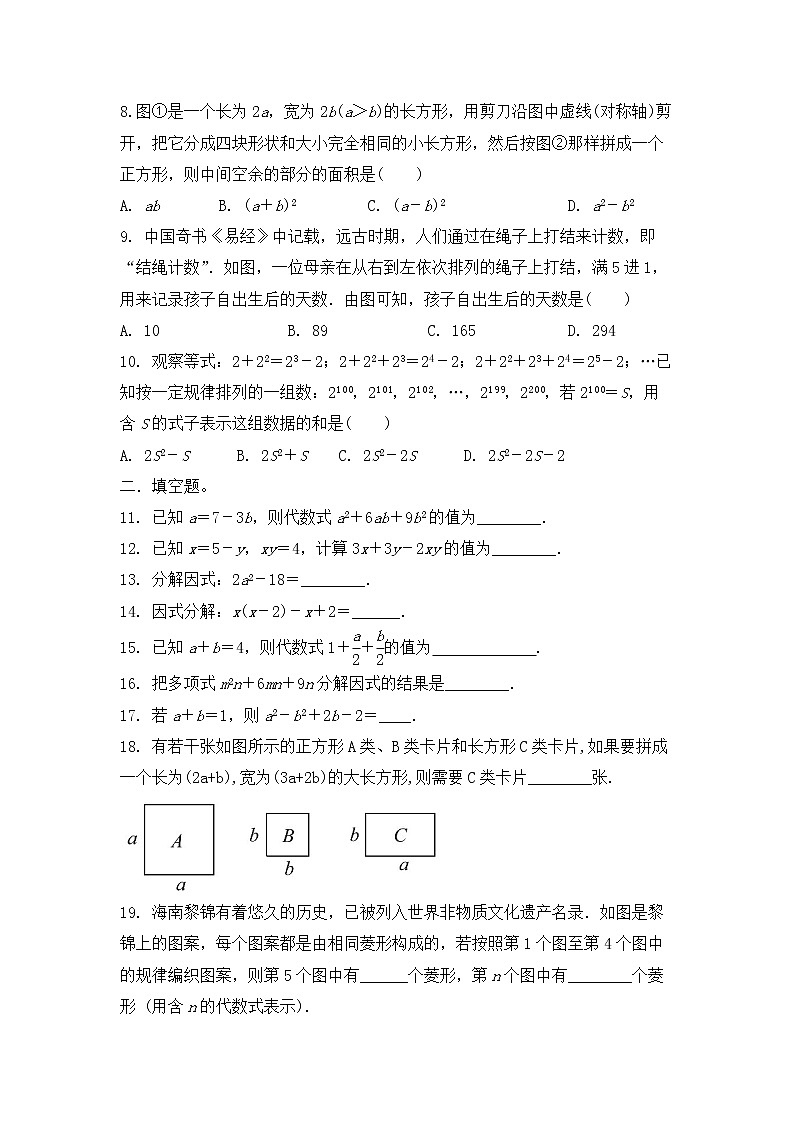 8.图①是一个长为 2a，宽为 2b(a＞b)的长方形，用剪刀沿图中虚线(对称轴)剪
开，把它分成四块形状和大小完全相同的小长方形，然后按图②那样拼成一个
正方形，则中间空余的部分的面积是(　　)
A. ab　　B. (a＋b)²　　C. (a－b)²　　D. a²－b²
9. 中国奇书《易经》中记载，远古时期，人们通过在绳子上打结来计数，即
“结绳计数”．如图，一位母亲在从右到左依次排列的绳子上打结，满 5 进 1，
用来记录孩子自出生后的天数．由图可知，孩子自出生后的天数是(　　)
A. 10　　B. 89　　C. 165　　D. 294
10. 观察等式：2＋2²＝2³－2；2＋2²＋2³＝2⁴－2；2＋2²＋2³＋2⁴＝2⁵－2；…已
知按一定规律排列的一组数：2¹⁰⁰，2¹⁰¹，2¹⁰²，…，2¹⁹⁹，2²⁰⁰，若 2¹⁰⁰＝S，用
含 S 的式子表示这组数据的和是(　　)
A. 2S²－S　　B. 2S²＋S　　C. 2S²－2S　　D. 2S²－2S－2
二．填空题。
11. 已知 a＝7－3b，则代数式 a²＋6ab＋9b² 的值为________．
12. 已知 x＝5－y，xy＝4，计算 3x＋3y－2xy 的值为________．
13. 分解因式：2a²－18＝________．
14. 因式分解：x(x－2)－x＋2＝______．
15. 已知 a＋b＝4，则代数式 1＋a/2＋b/2的值为_____________．
16. 把多项式 m²n＋6mn＋9n 分解因式的结果是________．
17. 若 a＋b＝1，则 a²－b²＋2b－2＝____．
18. 有若干张如图所示的正方形 A 类、B 类卡片和长方形 C 类卡片,如果要拼成
一个长为(2a+b),宽为(3a+2b)的大长方形,则需要 C 类卡片________张.
a A a
b B b
b C a
19. 海南黎锦有着悠久的历史，已被列入世界非物质文化遗产名录．如图是黎
锦上的图案，每个图案都是由相同菱形构成的，若按照第 1 个图至第 4 个图中
的规律编织图案，则第 5 个图中有______个菱形，第 n 个图中有________个菱
形 (用含 n 的代数式表示)．